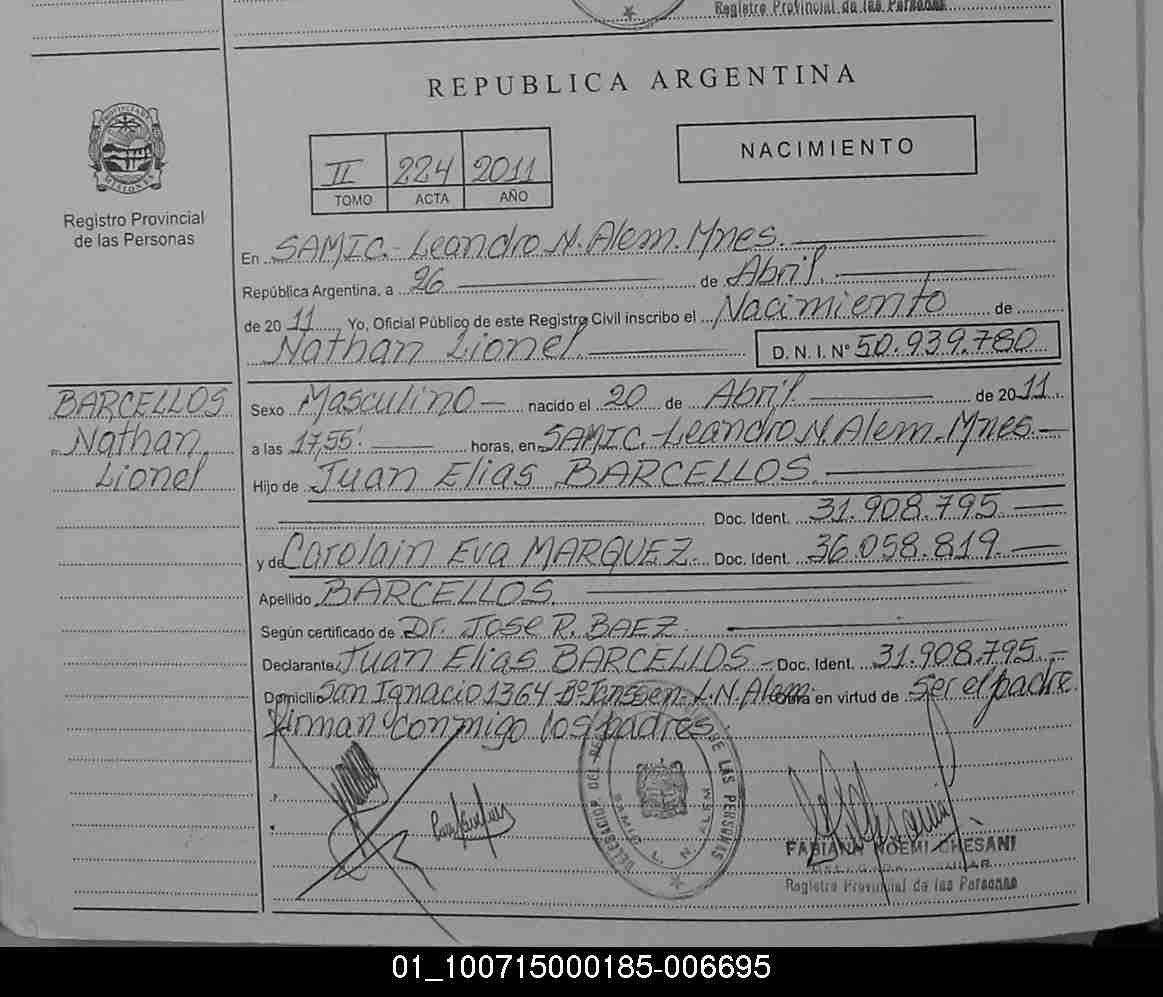 Registro Provincial de las Personas
REPUBLICA ARGENTINA
PROVINCIA DE
MISIONES
Registro Provincial
de las Personas
II 224 2011
TOMO ACTA AÑO
NACIMIENTO
En SAMIC. Leandro N. Alem. Mnes.
República Argentina, a 26 de Abril.
de 2011, Yo, Oficial Público de este Registro Civil inscribo el Nacimiento de
Nathan Lionel. D. N. I. Nº 50.939.780
BARCELLOS
Nathan
Lionel
Sexo Masculino nacido el 20 de Abril de 2011.
a las 17,55' horas, en SAMIC. Leandro N. Alem. Mnes.
Hijo de Juan Elias BARCELLOS.
Doc. Ident. 31.908.795.
y de Carolain Eva MARQUEZ. Doc. Ident. 36.058.819.
Apellido BARCELLOS.
Según certificado de Dr. JOSE R. BAEZ.
Declarante Juan Elias BARCELLOS - Doc. Ident. 31.908.795.-
Domicilio San Ignacio 1364 Bº Janssen L.N. Alem. Obra en virtud de Ser el padre.
Firman conmigo los padres.
DELEGACION DEL REG. DE LAS PERSONAS
SAMIC L. N. ALEM
FABIANA NOEMI CHESANI
Registro Provincial de las Personas
01_100715000185-006695